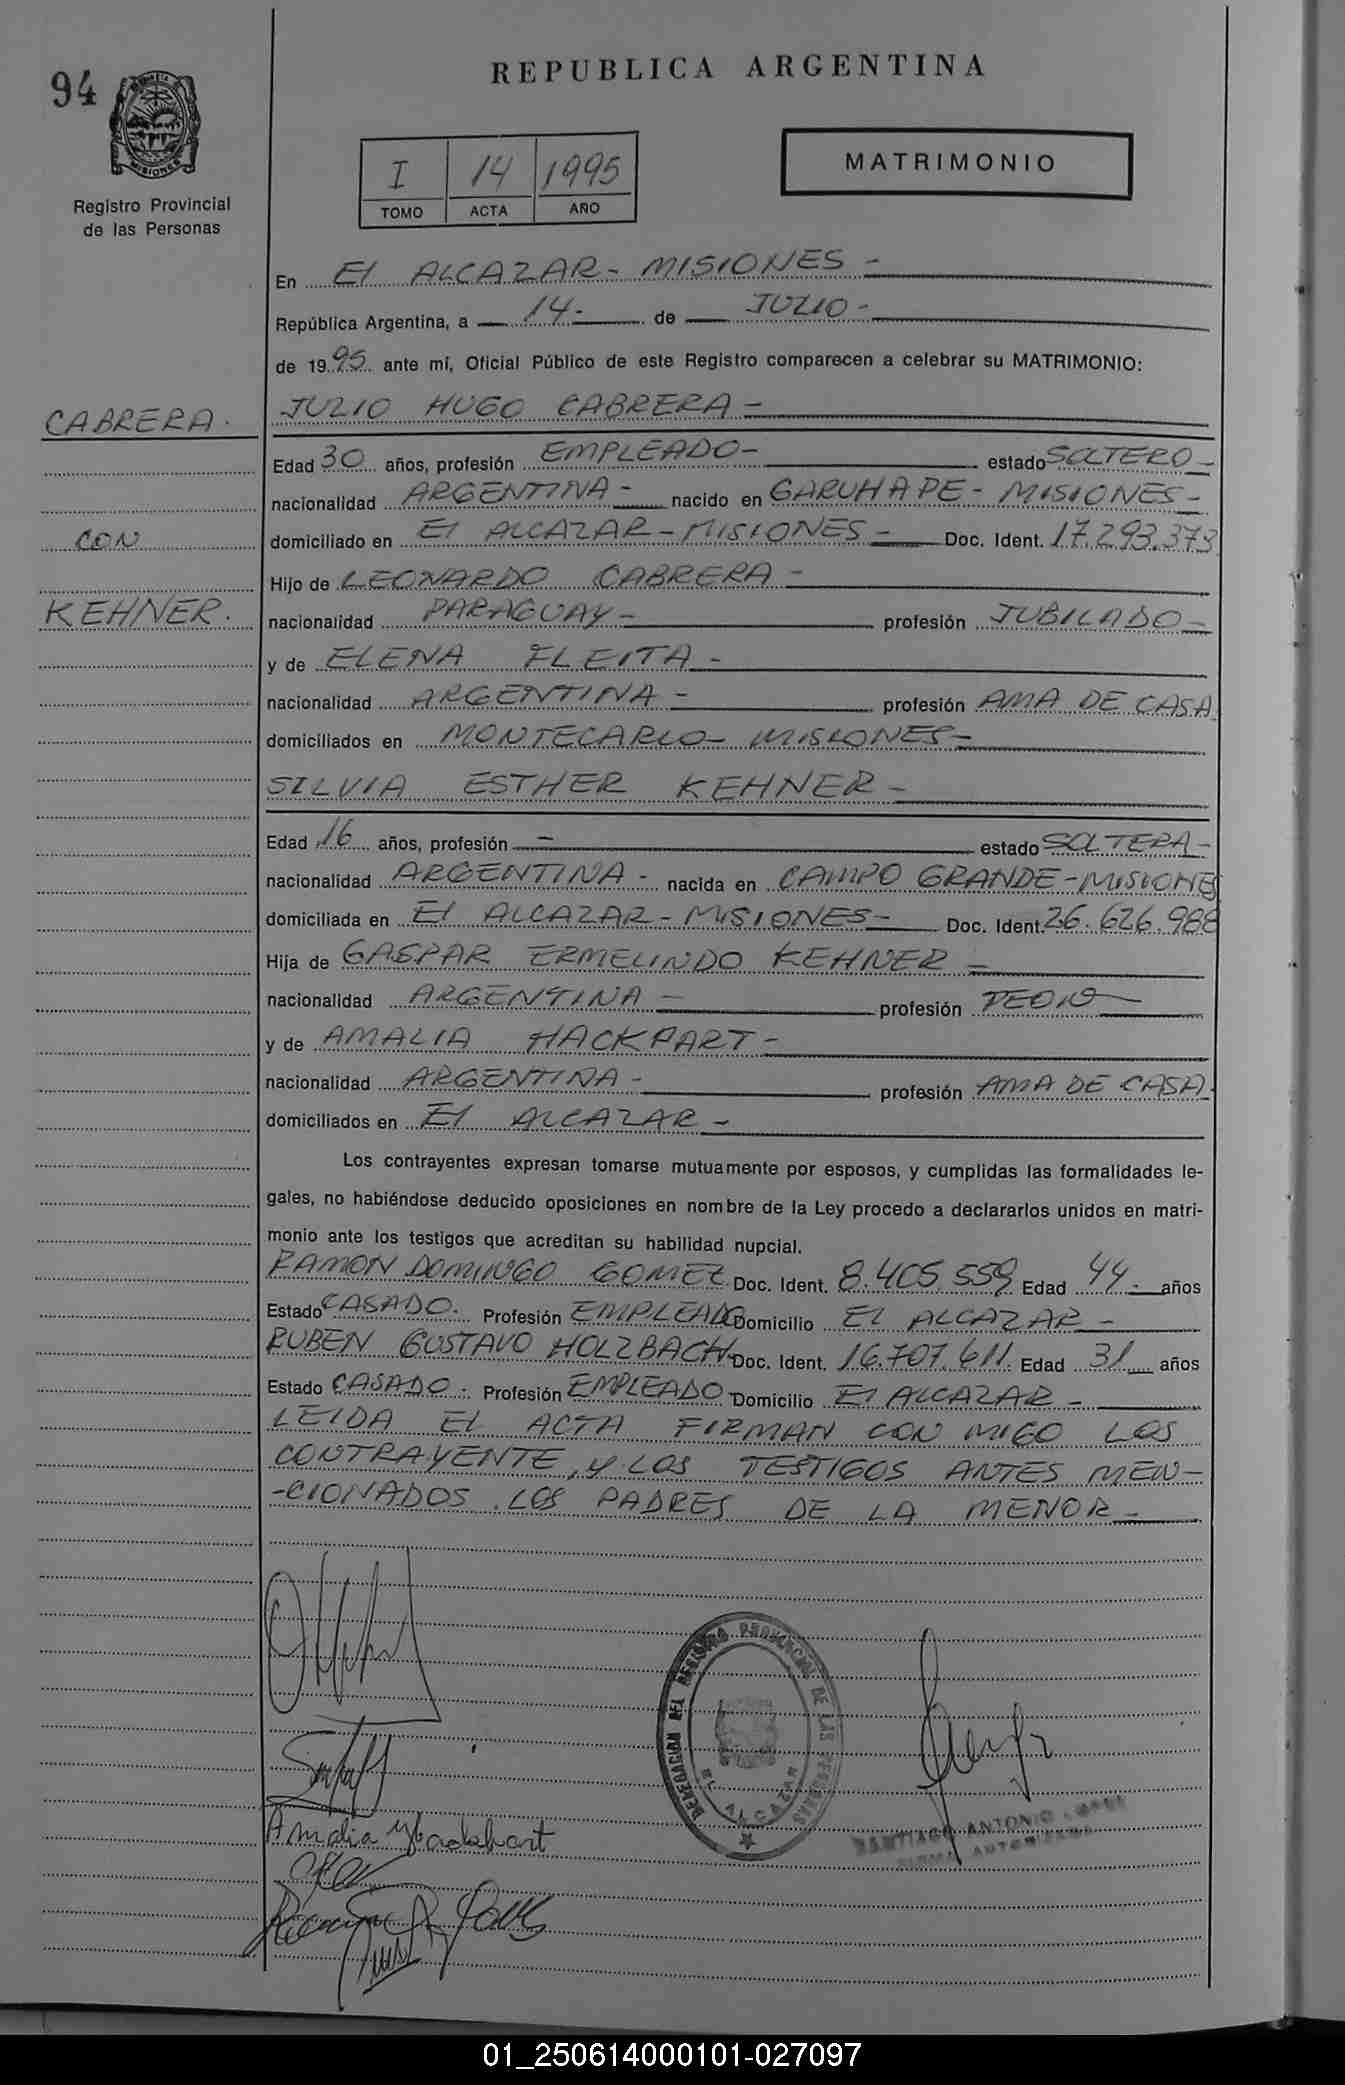 94
REPUBLICA ARGENTINA
MISIONES
Registro Provincial
de las Personas
I 14 1995
TOMO ACTA AÑO
MATRIMONIO
En El ALCAZAR - MISIONES -
República Argentina, a 14- de JULIO -
de 1995 ante mí, Oficial Público de este Registro comparecen a celebrar su MATRIMONIO:
CABRERA.
CON
KEHNER.
JULIO HUGO CABRERA -
Edad 30 años, profesión EMPLEADO - estado SOLTERO -
nacionalidad ARGENTINA - nacido en GARUHAPE - MISIONES -
domiciliado en El ALCAZAR - MISIONES - Doc. Ident. 17.293.373
Hijo de LEONARDO CABRERA -
nacionalidad PARAGUAY - profesión JUBILADO -
y de ELENA FLEITA -
nacionalidad ARGENTINA - profesión AMA DE CASA.
domiciliados en MONTECARLO - MISIONES -
SILVIA ESTHER KEHNER -
Edad 16 años, profesión - estado SOLTERA -
nacionalidad ARGENTINA - nacida en CAMPO GRANDE - MISIONES
domiciliada en El ALCAZAR - MISIONES - Doc. Ident. 26.626.988
Hija de GASPAR ERMELINDO KEHNER -
nacionalidad ARGENTINA - profesión PEON -
y de AMALIA HACKPART -
nacionalidad ARGENTINA - profesión AMA DE CASA.
domiciliados en El ALCAZAR -
Los contrayentes expresan tomarse mutuamente por esposos, y cumplidas las formalidades le-
gales, no habiéndose deducido oposiciones en nombre de la Ley procedo a declararlos unidos en matri-
monio ante los testigos que acreditan su habilidad nupcial.
RAMON DOMINGO GOMEZ Doc. Ident. 8.405.559 Edad 44 - años
Estado CASADO. Profesión EMPLEADO Domicilio EL ALCAZAR -
RUBEN GUSTAVO HOLZBACH - Doc. Ident. 16.707.611 Edad 31 años
Estado CASADO. Profesión EMPLEADO - Domicilio El ALCAZAR -
LEIDA EL ACTA FIRMAN CON MIGO LOS
CONTRAYENTE, Y LOS TESTIGOS ANTES MEN-
-CIONADOS. LOS PADRES DE LA MENOR -
DELEGACION DEL REGISTRO PROVINCIAL DE LAS PERSONAS
EL ALCAZAR
Amalia
SANTIAGO ANTONIO
FIRMA AUTORIZADA
01_250614000101-027097